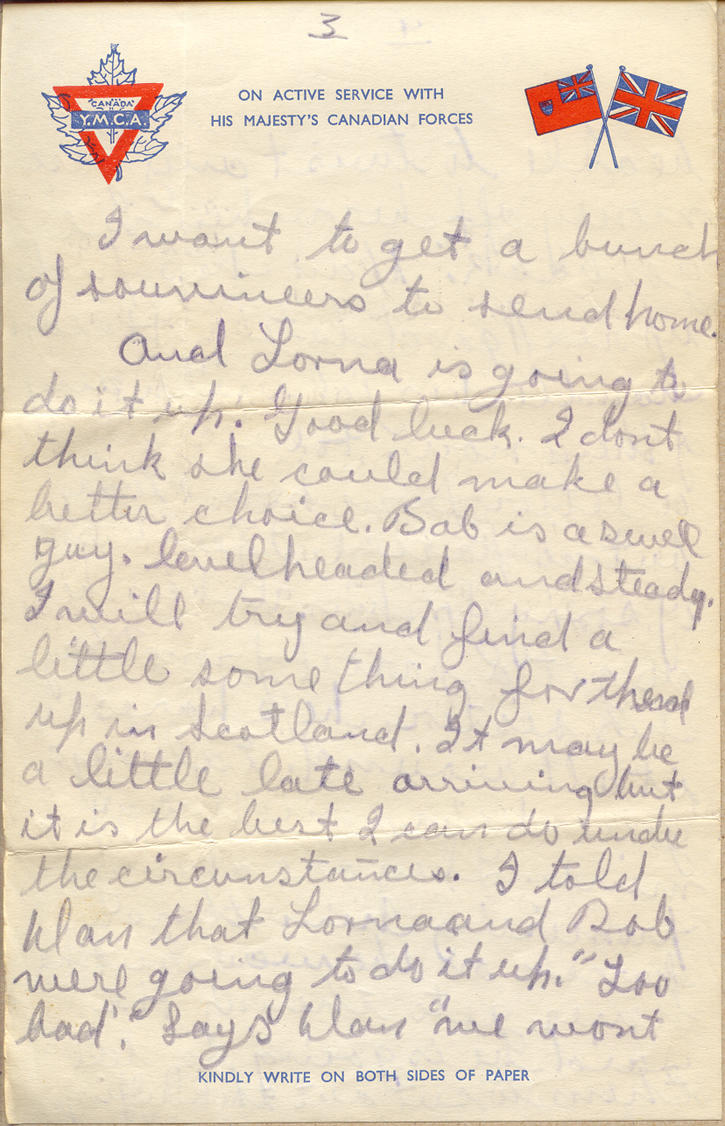 3
CANADA
Y.M.C.A.
ON ACTIVE SERVICE WITH
HIS MAJESTY'S CANADIAN FORCES
I want to get a bunch
of souvineers to send home.
And Lorna is going to
do it up. Good luck. I dont
think she could make a
better choice. Bob is a swell
guy. levelheaded and steady.
I will try and find a
little something for them
up in Scotland. It may be
a little late arriving but
it is the best I can do under
the circunstances. I told
that Lorna and Bob
were going to do it up." Too
bad". Says "we wont
KINDLY WRITE ON BOTH SIDES OF PAPER